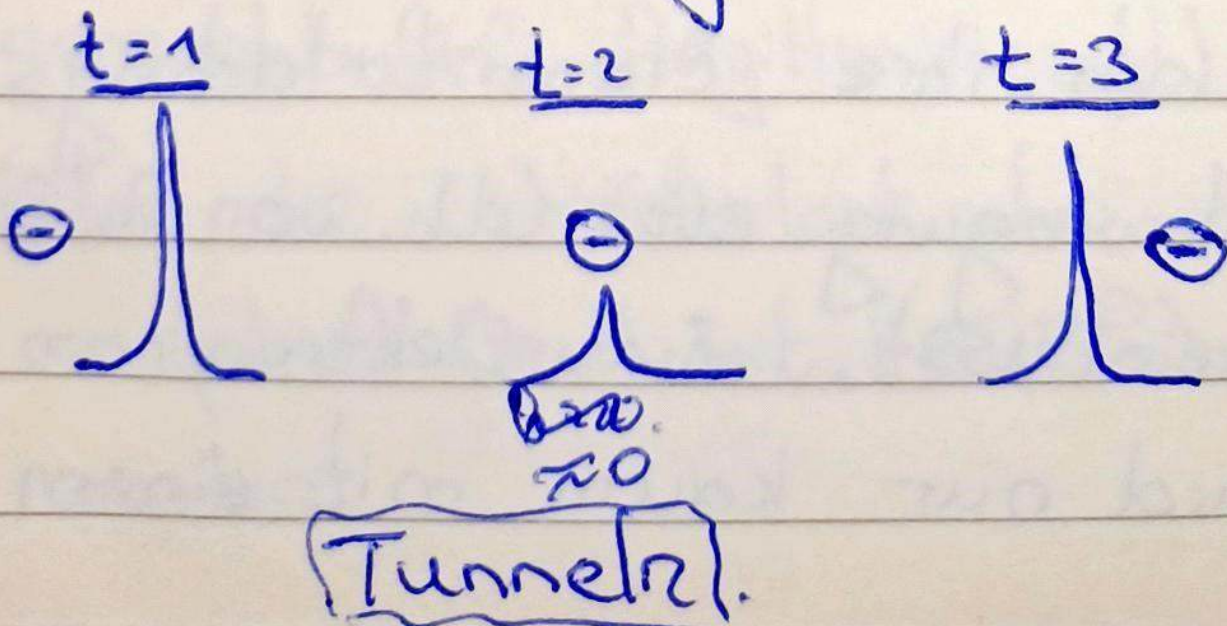 t=1 t=2 t=3
⊖ ⊖ ⊖
≈0
Tunneln.